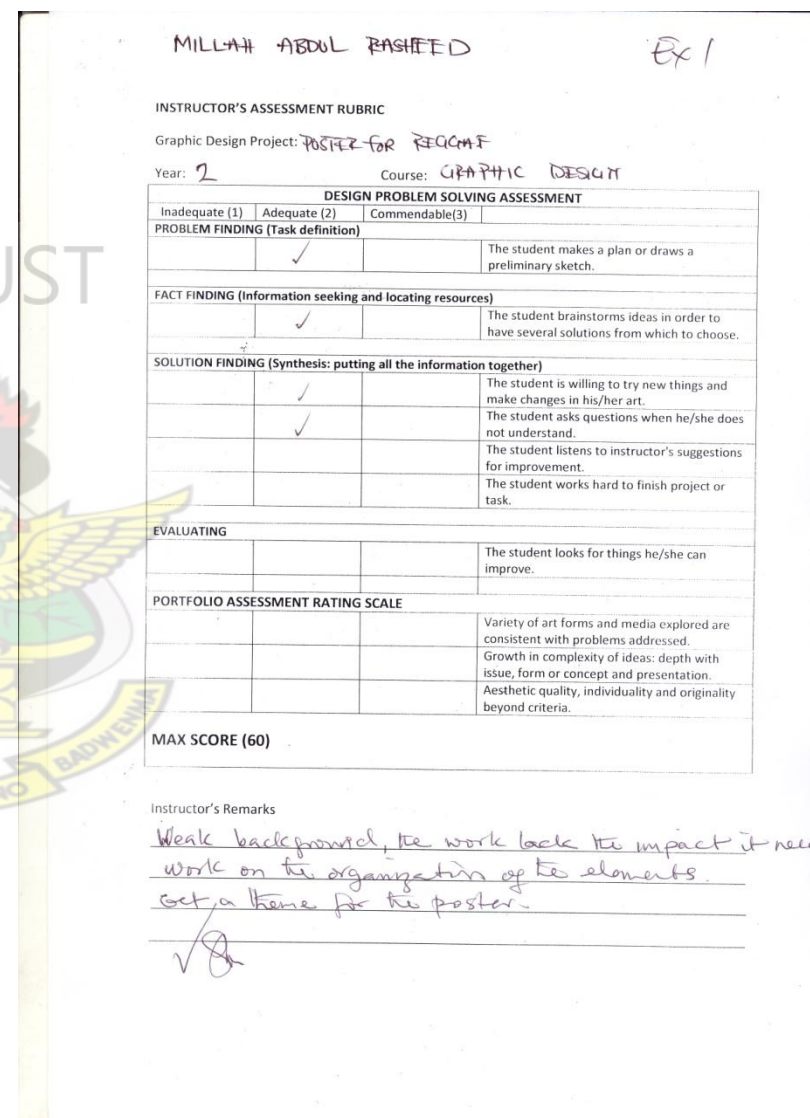 MILLAH ABDUL RASHEED
Ex 1
INSTRUCTOR'S ASSESSMENT RUBRIC
Graphic Design Project: POSTER FOR REGGAE
Year: 2 Course: GRAPHIC DESIGN
DESIGN PROBLEM SOLVING ASSESSMENT
Inadequate (1) Adequate (2) Commendable(3)
PROBLEM FINDING (Task definition)
The student makes a plan or draws a
preliminary sketch.
FACT FINDING (Information seeking and locating resources)
The student brainstorms ideas in order to
have several solutions from which to choose.
SOLUTION FINDING (Synthesis: putting all the information together)
The student is willing to try new things and
make changes in his/her art.
The student asks questions when he/she does
not understand.
The student listens to instructor's suggestions
for improvement.
The student works hard to finish project or
task.
EVALUATING
The student looks for things he/she can
improve.
PORTFOLIO ASSESSMENT RATING SCALE
Variety of art forms and media explored are
consistent with problems addressed.
Growth in complexity of ideas: depth with
issue, form or concept and presentation.
Aesthetic quality, individuality and originality
beyond criteria.
MAX SCORE (60)
Instructor's Remarks
Weak background, the work lack the impact it nee
work on the organization of the elements.
Get a theme for the poster.
UST
NO BADWENMA